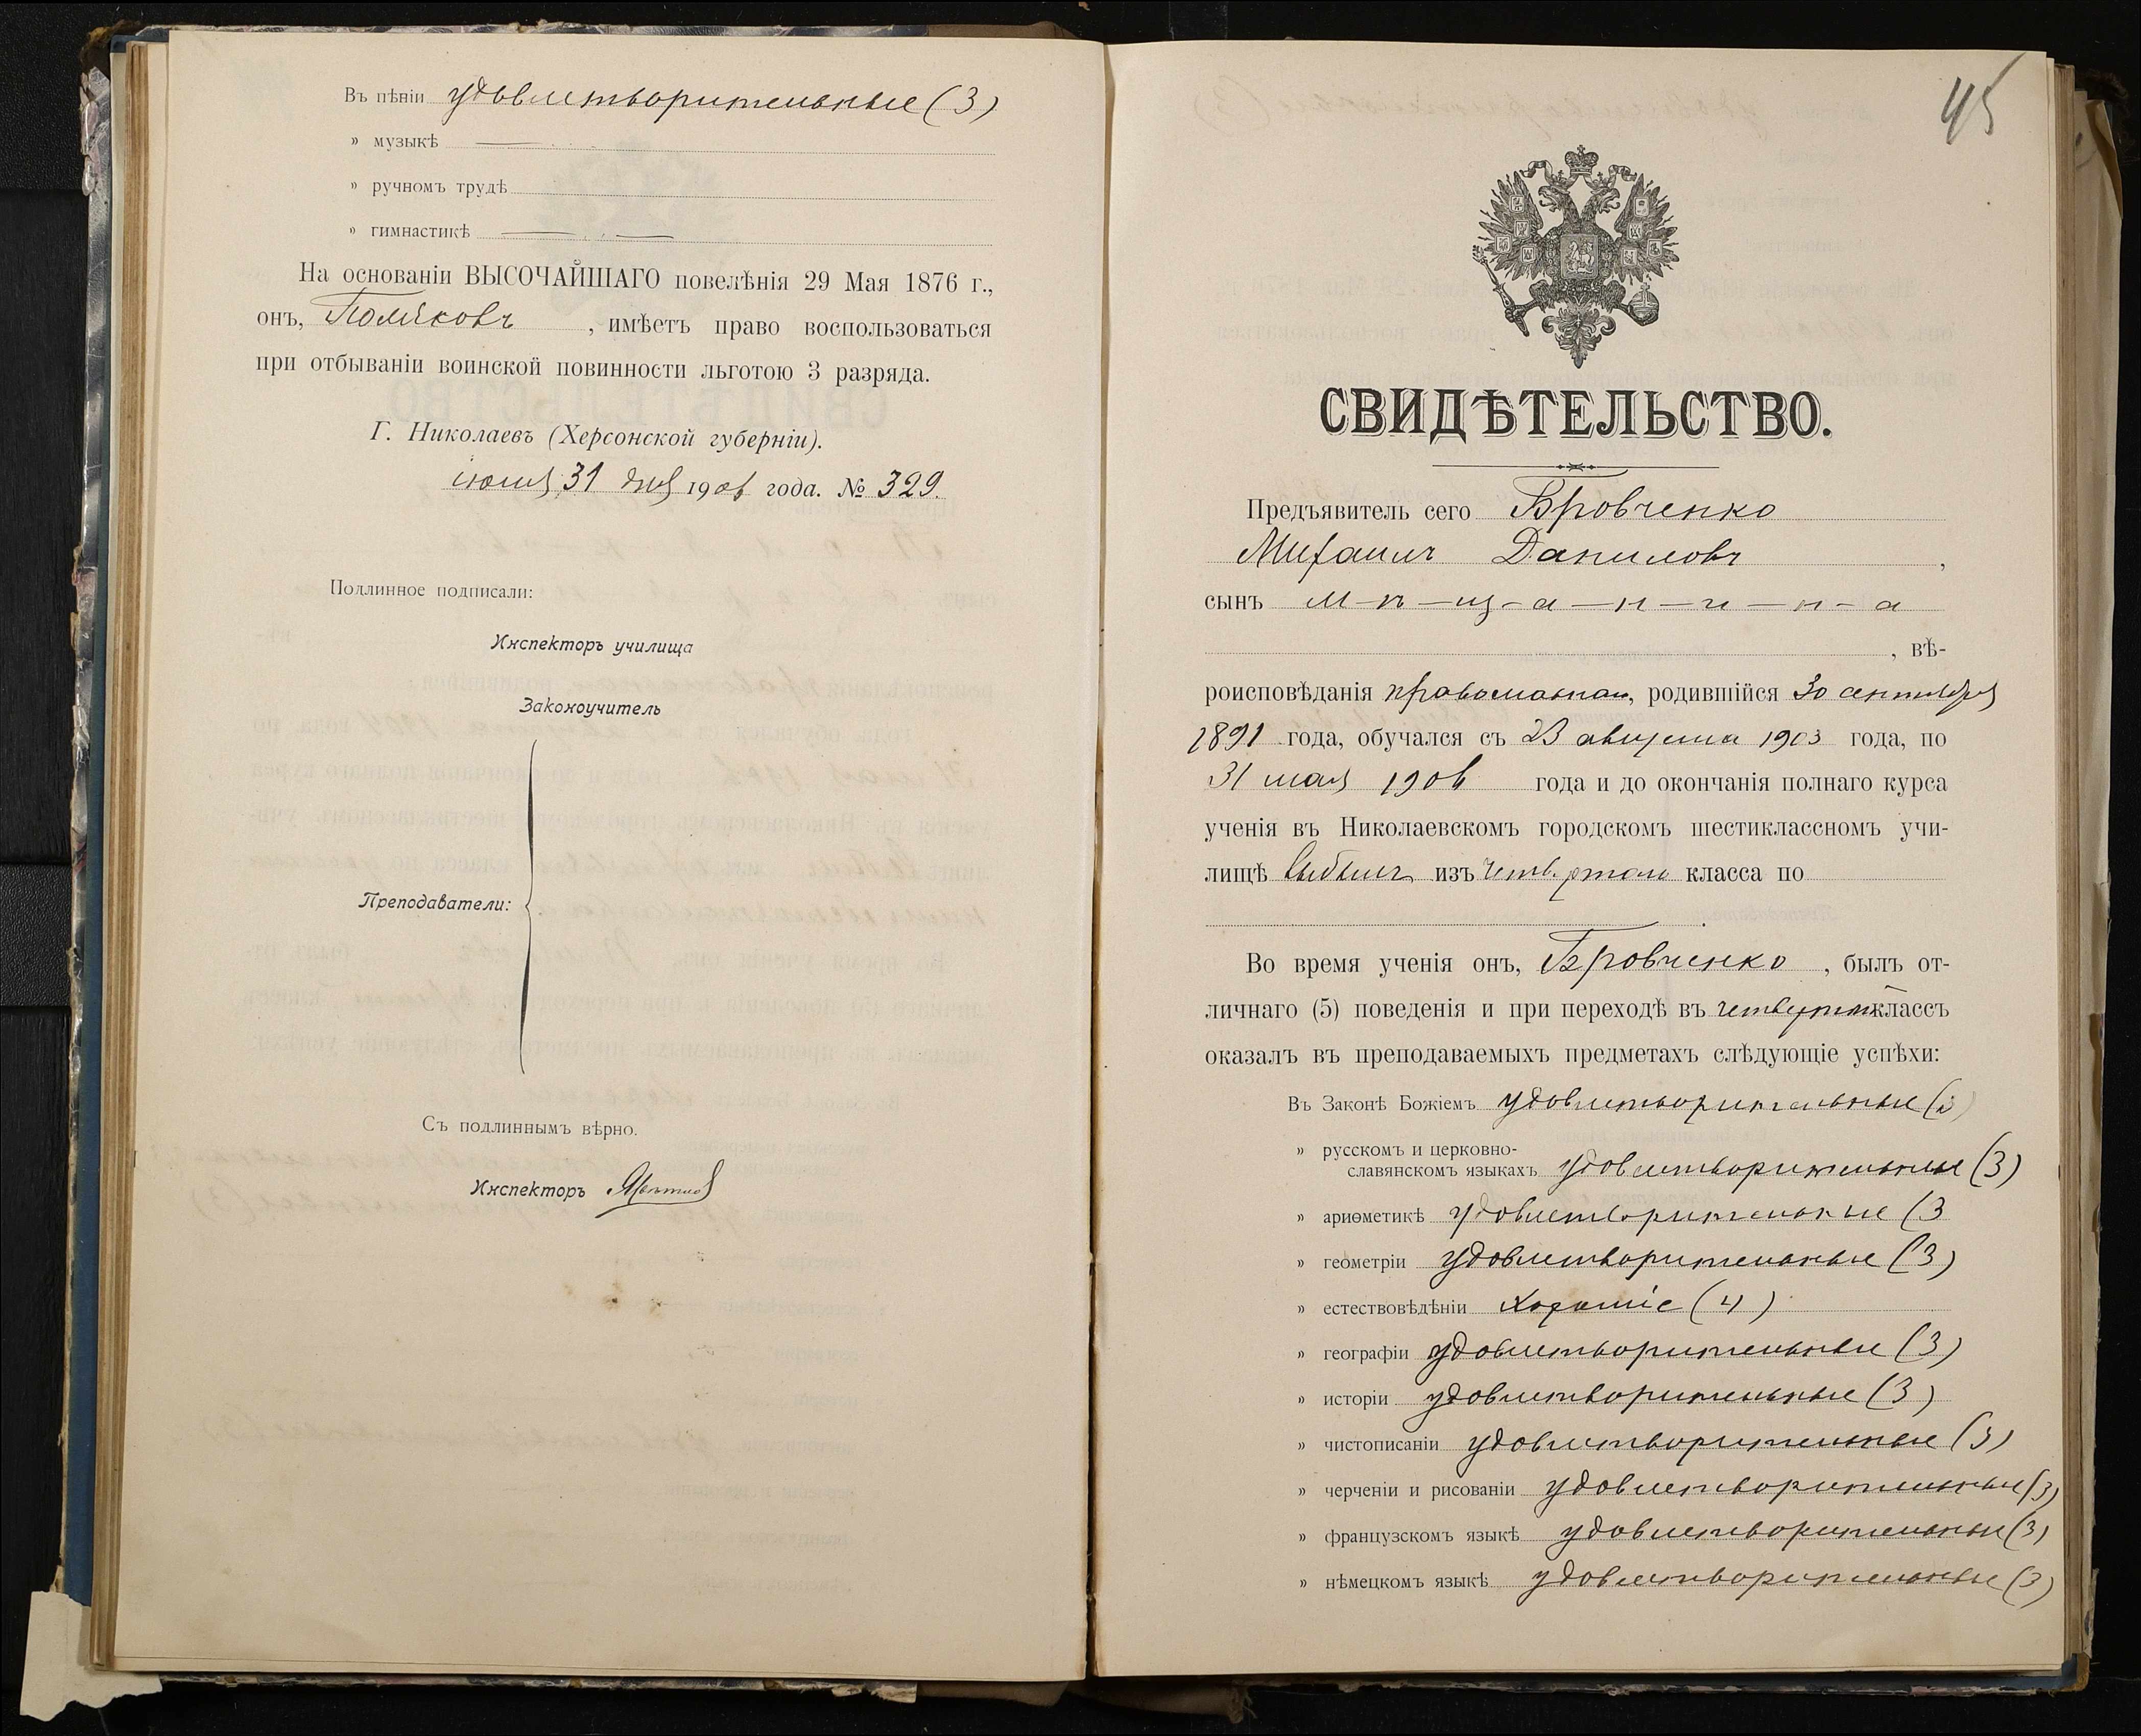 Въ пѣніи удовлетворительные (3)
» музыкѣ
» ручномъ трудѣ
» гимнастикѣ
На основаніи ВЫСОЧАЙШАГО повелѣнія 29 Мая 1876 г.,
онъ, Поляковъ, имѣетъ право воспользоваться
при отбываніи воинской повинности льготою 3 разряда.
Г. Николаевъ (Херсонской губерніи).
31 дня 1906 года. № 329.
Подлинное подписали:
Инспекторъ училища
Законоучитель
Преподаватели:
Съ подлиннымъ вѣрно.
Инспекторъ
45
СВИДѢТЕЛЬСТВО.
Предъявитель сего Бровченко
Михаилъ Даниловъ,
сынъ м-ѣ-щ-а-н-и-н-а
, вѣ-
роисповѣданія православнаго, родившійся 30 сентября
1891 года, обучался съ 23 августа 1903 года, по
31 мая 1906 года и до окончанія полнаго курса
ученія въ Николаевскомъ городскомъ шестиклассномъ учи-
лищѣ выбылъ изъ четвертаго класса по
Во время ученія онъ, Бровченко, былъ от-
личнаго (5) поведенія и при переходѣ въ четвертый классъ
оказалъ въ преподаваемыхъ предметахъ слѣдующіе успѣхи:
Въ Законѣ Божіемъ удовлетворительные (3)
» русскомъ и церковно-
славянскомъ языкахъ удовлетворительные (3)
» ариѳметикѣ удовлетворительные (3
» геометріи удовлетворительные (3)
» естествовѣдѣніи хорошіе (4)
» географіи удовлетворительные (3)
» исторіи удовлетворительные (3)
» чистописаніи удовлетворительные (3)
» черченіи и рисованіи удовлетворительные (3)
» французскомъ языкѣ удовлетворительные (3)
» нѣмецкомъ языкѣ удовлетворительные (3)